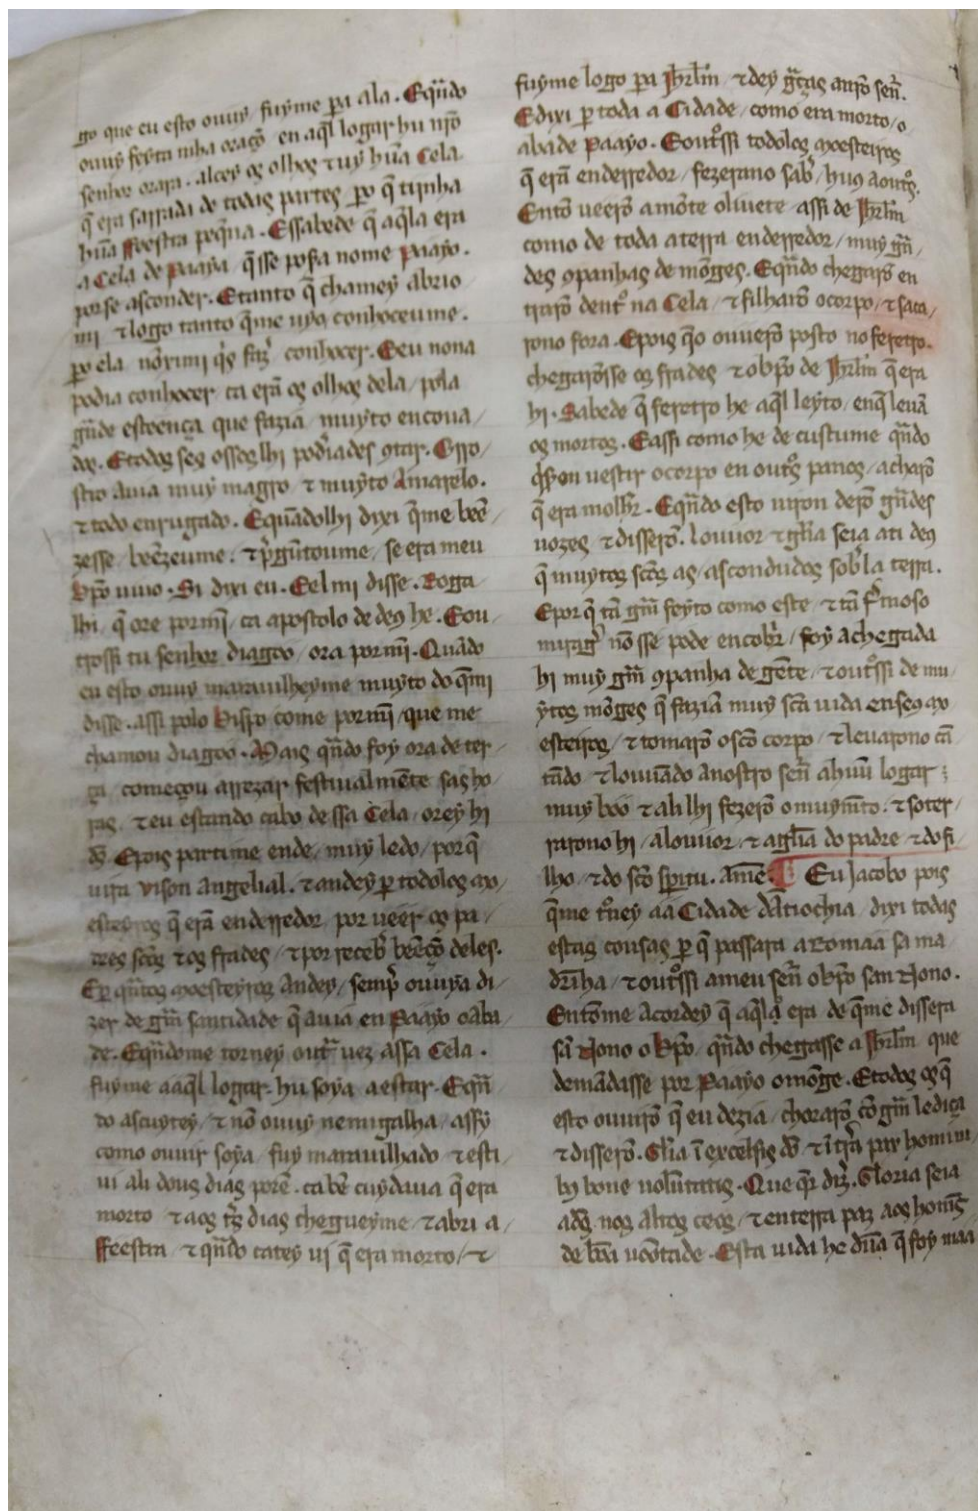 go que eu esto ouuy, fuyme ꝑa ala. Eqn̄do
ouuy feyta mha oraçō en aql̄ logar hu nr̄o
senhor orara. alcey os olhos ⁊ uy hũa Cela
q̄ era sarrada de todas partes ꝑo q̄ tijnha
hũa ffeestra peq̄na. Essabede q̄ aq̄la era
a Cela de Paaya q̄sse posera nome Paayo.
por se asconder. Etanto q̄ chamey abrio
mi ⁊ logo tanto q̄me uyo conhoceume.
ꝑo ela nō xi mi q̄s faz̄ conhocer. Eeu nona
podia conhocer ca erā os olhos dela / pola
gn̄de esteença que fazia / muyto encoua /
dos. Etodos seos ossos lhi pod̄iades ꝯtar. Orro /
stro auia muy magro / ⁊ muyto Amarelo.
⁊ todo enrugado. Equādolhi dixi q̄me beē
zesse / beēzeume. ⁊ p̄gūtoume / se era meu
bp̄o uiuo. Si dixi eu. Eel mi disse. Roga
lhi / q̄ ore por mī / ca apostolo de deus he. Eou
trossi tu senhor diagoo / ora por mī. Quādo
eu esto ouuy marauilheyme muyto do q̄mi
disse. assi polo Bispo come por mī / que me
chamou diagoo. Mais qn̄do foy ora de ter /
ça / começou arrezar festiualmēte sas ho /
ras. ⁊ eu estando cabo de ssa Cela / orey hi
ds̄. Epois partime ende / muy ledo / por q̄
uira vison angelial. ⁊ andey ꝑ todolos mo /
esteyros q̄ erā enderredor / por ueer os pa /
dres scōs ⁊ os frades / ⁊ por receb̄ beēçō deles.
E ꝑ qn̄tos moesteyros andey / semp̄ ouuya di /
zer de grm̄ santidade q̄ auia en Paayo oaba
de. Eqn̄dome torney out̄ uez assa Cela.
fuyme aaql̄ logar. hu soya aestar. Eqn̄
do ascuytey / ⁊ nō ouuy nemigalha / assy
como ouuir soya / fuy marauilhado ⁊ esti
ui ali dous dias porē. ca bē cuydaua q̄ era
morto ⁊ aos tr̄s dias chegueyme / ⁊ abri a /
ffeestra ⁊ qn̄do catey ui q̄ era morto / ⁊
fuyme logo pa Jhrl̄m / ⁊ dey gr̄ças anr̄o sen̄.
Edixi ꝑ toda a Cidade / como era morto / o
abade Paayo. Eoutͦssi todolos moesteiros
q̄ erā enderredor / fezerano sab̄ / hus aoutͦs.
Entō ueerō amōte oliuete / assi de Jhrl̄m
como de toda aterra enderredor / muy grn̄ /
des ꝯpanhas de mōges. Eqn̄do chegarō en
trarō dentͦ na Cela / ⁊ filharō ocorpo / ⁊ saca /
rono fora. Epois q̄o ouuerō posto no feretro.
chegarōsse os frades ⁊ obp̄o de Jhrl̄m q̄ era
hi. Sabede q̄ feretro he aql̄ leyto / enq̄ leuā
os mortos. Eassi como he de custume qn̄do
q̄seron uestir ocorpo en outͦs panos / acharō
q̄ era molhr̄. Eqn̄do esto uiron derō gn̄des
uozes ⁊ disserō. louuor ⁊ glīa seia ati deus
q̄ muytos scōs as / ascondudos sob̄ la terra.
Epor q̄ tā grm̄ feyto como este / ⁊ tā f̄moso
miragr̄ nō sse pode encobr̄ / foy achegada
hi muy grm̄ ꝯpanha de gēte / ⁊ outͦssi de mu /
ytos mōges q̄ fazia muy scā uida enseus mo
esteiros / ⁊ tomarō oscō corpo / ⁊ leuarono cā
tādo ⁊ louuādo anostro sen̄ ahuū logar ;
muy boo ⁊ ali lhi fezerō omuymēto. ⁊ soter /
rarono hi / alouuor. ⁊ aglīa do padre ⁊ dofi /
lho / ⁊ do scō sp̄itu. Amē. ¶ Eu Jacobo pois
q̄me tͦney aa Cidade dātiochia / dixi todas
estas cousas ꝑ q̄ passara aRomaa sa ma /
drīha / ⁊ outͦssi ameu sen̄ obp̄o san Nono.
Entōme acordey q̄ aq̄la era de q̄me dissera
sā Nono o bp̄o / qn̄do chegasse a Jhrl̄m que
demādasse por Paayo omōge. Etodos os q̄
esto ouuirō q̄ eu dezia / chorarō cō grm̄ lediça
⁊ disserō. Glīa ī excelsis dō ⁊ ī tr̄a pax homini
bꝫ bone uolūtatis. Que qr̄ diz̄. Gloria seia
ads̄ nos altos ceos / ⁊ enterra paz aos homēs
de bōa uoōtade. Esta uida he dūa q̄ foy maa